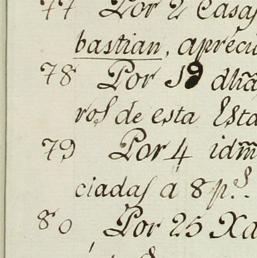 77 Por 2 Casas
bastian, apreci
78 Por 19 dhã
ros de esta Esta
79 Por 4 idm̃
ciadas a 8 p.s
80 Por 25 Xa